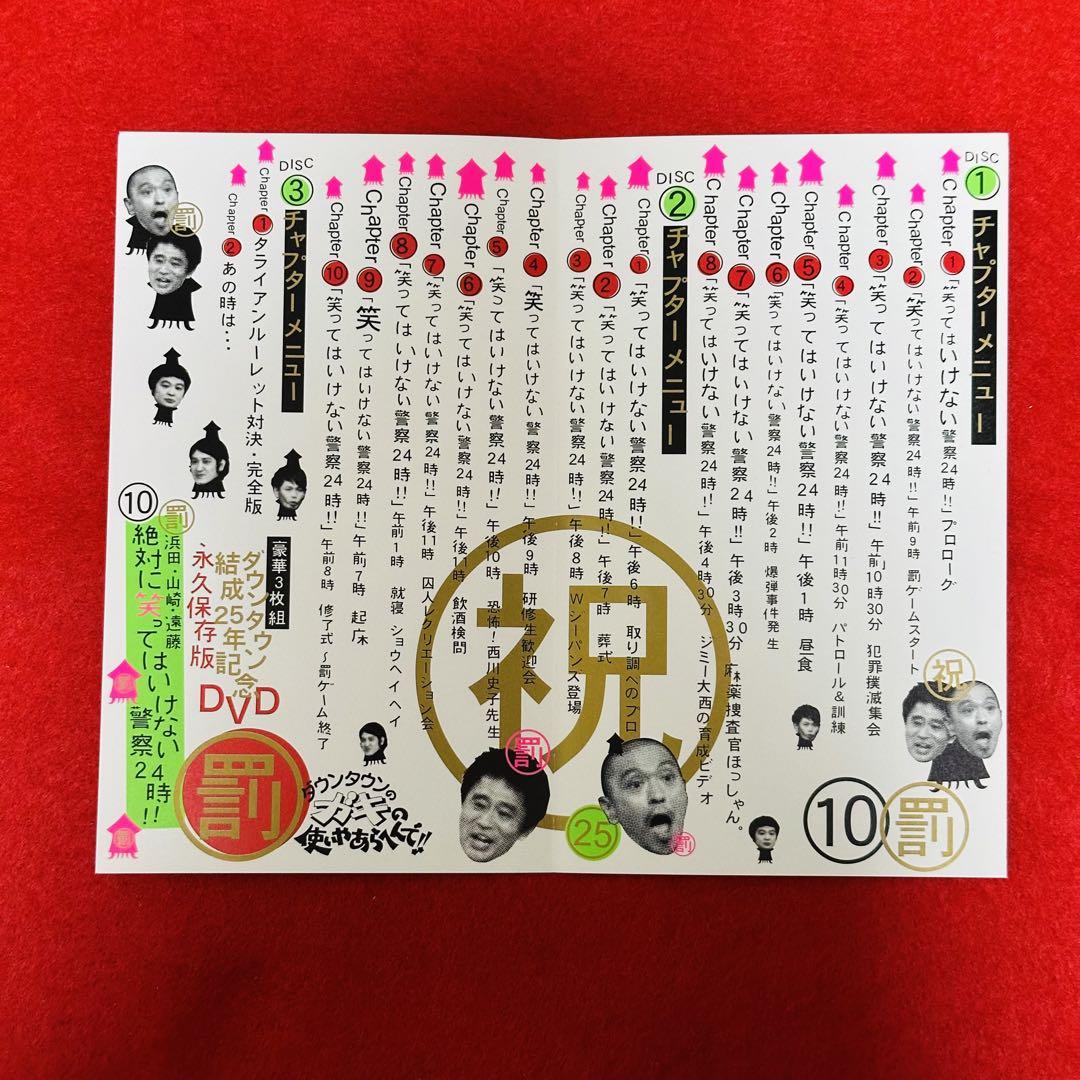 DISC
1
チャプターメニュー
Chapter 1 「笑ってはいけない警察24時!!」プロローグ
Chapter 2 「笑ってはいけない警察24時!!」午前9時 罰ゲームスタート
Chapter 3 「笑ってはいけない警察24時!!」午前10時30分 犯罪撲滅集会
Chapter 4 「笑ってはいけない警察24時!!」午前11時30分 パトロール&訓練
Chapter 5 「笑ってはいけない警察24時!!」午後1時 昼食
Chapter 6 「笑ってはいけない警察24時!!」午後2時 爆弾事件発生
Chapter 7 「笑ってはいけない警察24時!!」午後3時30分 麻薬捜査官ほっしゃん。
Chapter 8 「笑ってはいけない警察24時!!」午後4時30分 ジミー大西の育成ビデオ
DISC
2
チャプターメニュー
Chapter 1 「笑ってはいけない警察24時!!」午後6時 取り調べのプロ
Chapter 2 「笑ってはいけない警察24時!!」午後7時 葬式
Chapter 3 「笑ってはいけない警察24時!!」午後8時 Wジーパンズ登場
Chapter 4 「笑ってはいけない警察24時!!」午後9時 研修生歓迎会
Chapter 5 「笑ってはいけない警察24時!!」午後10時 恐怖!西川史子先生
Chapter 6 「笑ってはいけない警察24時!!」午後11時 飲酒検問
Chapter 7 「笑ってはいけない警察24時!!」午後11時 囚人レクリエーション会
Chapter 8 「笑ってはいけない警察24時!!」午前1時 就寝 ショウヘイヘイ
Chapter 9 「笑ってはいけない警察24時!!」午前7時 起床
Chapter 10 「笑ってはいけない警察24時!!」午前8時 修了式〜罰ゲーム終了
DISC
3
チャプターメニュー
Chapter 1 タライアンルーレット対決・完全版
Chapter 2 あの時は・・・
祝
10
罰
祝
25
罰
罰
豪華3枚組
ダウンタウン
結成25年記念
永久保存版
DVD
罰
ダウンタウンの
ガキの
使いやあらへんで!!
罰
10
罰
浜田・山崎・遠藤
絶対に笑ってはいけない
警察24時!!
罰
罰